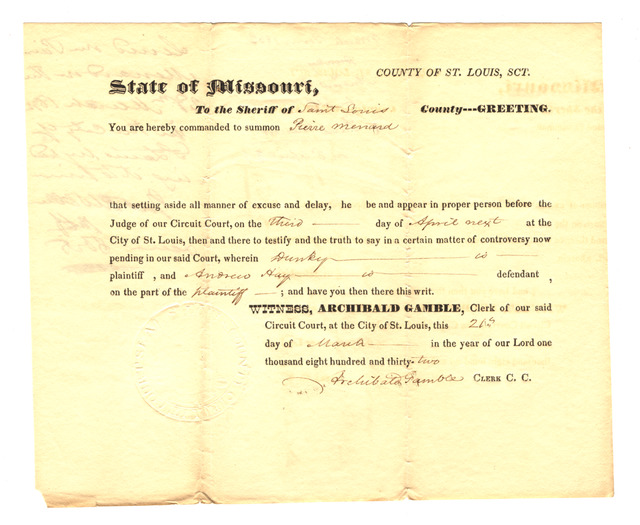 COUNTY OF ST. LOUIS, SCT.
State of Missouri,
To the Sheriff of Saint Louis County---GREETING.
You are hereby commanded to summon Pierre Menard
that setting aside all manner of excuse and delay, he be and appear in proper person before the
Judge of our Circuit Court, on the third day of April next at the
City of St. Louis, then and there to testify and the truth to say in a certain matter of controversy now
pending in our said Court, wherein Dunky is
plaintiff , and Andrew Hay is defendant ,
on the part of the plaintiff ; and have you then there this writ.
WITNESS, ARCHIBALD GAMBLE, Clerk of our said
Circuit Court, at the City of St. Louis, this
day of March in the year of our Lord one
thousand eight hundred and thirty-two
Archibald Gamble CLERK C. C.